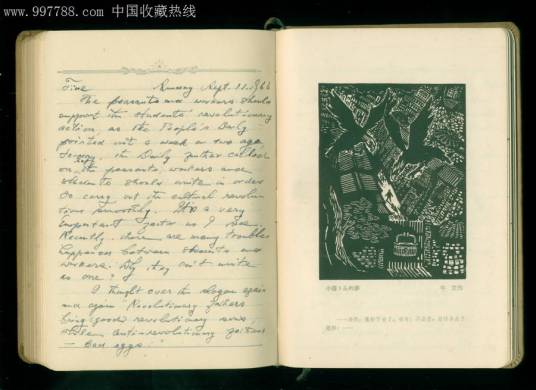 www.997788.com 中国收藏热线
Fine Sunday Sept. 11. 1966
The peasants and workers should
support the students' revolutionary
action, as the People's Daily
pointed out a week or two ago.
the Daily further called
on the peasants, workers and
students should unite in order
to carry out the cultural revolu-
tions smoothly. It is a very
important as I see.
Recently, there are many troubles
happen between students and
workers. Why they can't unite
as one?
I thought over the slogan again
and again Revolutionary fathers
bring good revolutionary sons,
while anti-revolutionary fathers
— bad eggs.